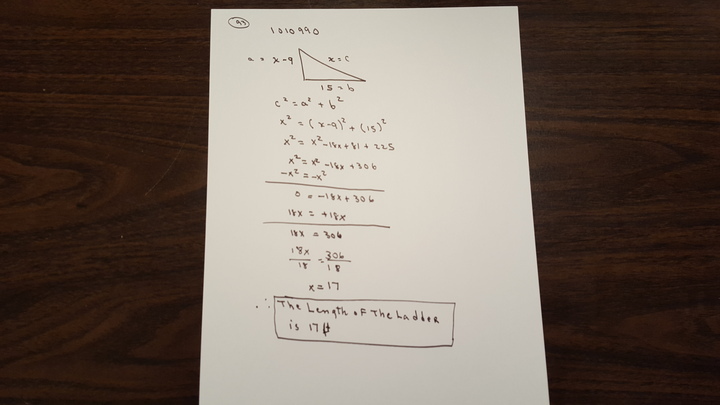 97
1010990
a = x-9 x=c
15 = b
c² = a² + b²
x² = (x-9)² + (15)²
x² = x² -18x + 81 + 225
x² = x² -18x + 306
-x² = -x²
0 = -18x + 306
18x = +18x
18x = 306
18x/18 = 306/18
x = 17
∴ The Length of The Ladder
is 17ft